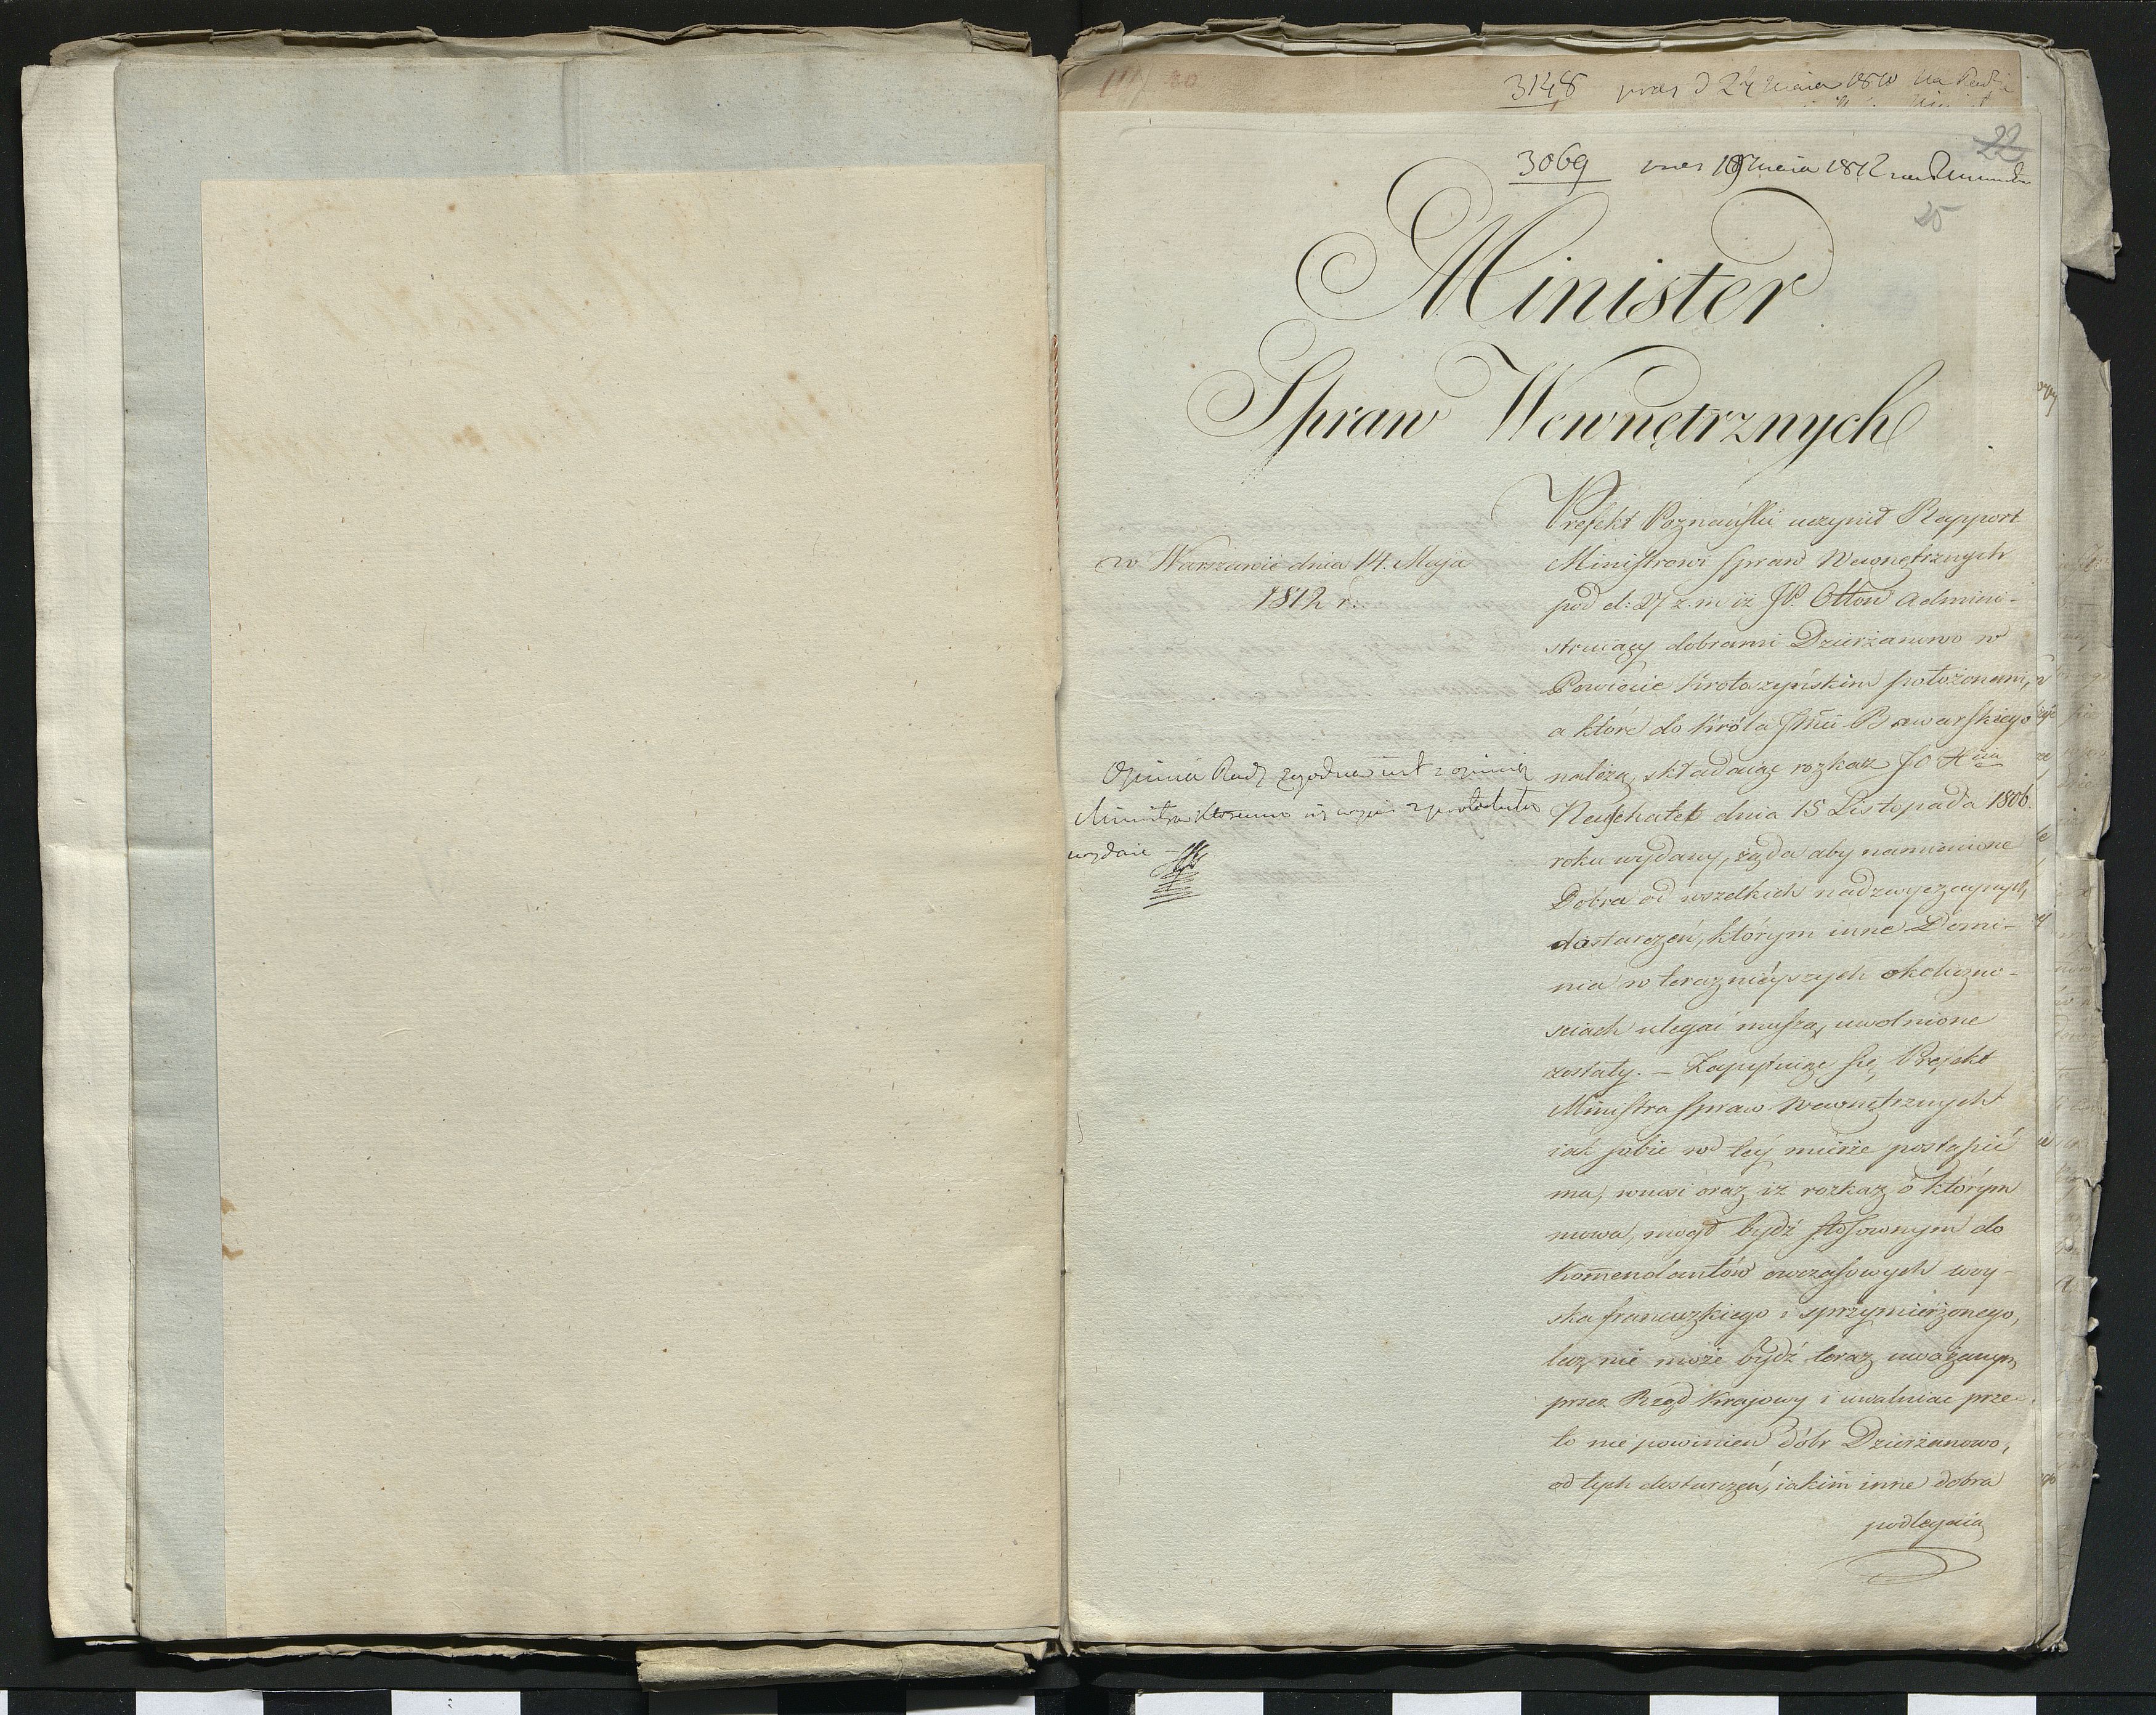 3148 pres d 24 maia 1810 na Radz
22
3069 pres 18 maia 1812 nad
25
Minister
Spraw Wewnętrznych
w Warszawie dnia 14. Maja
1812 r:
Opinia Rady zgodna iest z opinią
Ministra któremu się wypis z protokułu
wydaie
Prefekt Poznański uczynił Rapport
Ministrowi Spraw Wewnętrznych
pod d: 27 z. m. iż JP. Otton Admini-
struiący dobrami Dzierżanowo w
Powiecie Krotoszyńskim położonemi,
a które do Króla Jmci Bawarskiego
należą, składaiąc rozkaz JO Xcia
Neufchatel dnia 15 Listopada 1806.
roku wydany, żąda aby namienione
Dobra od wszelkich nadzwyczaynych
dostarczeń, którym inne Domi-
nia w teraznieyszych okoliczno-
sciach ulegać muszą, uwolnione
zostały. – Zapytuiąc się Prefekt
Ministra Spraw Wewnętrznych
iak sobie w tey mierze postąpić
ma, wnosi oraz iż rozkaz o którym
mowa, mógł bydź stosownym do
Kommendantów owczasowych woy-
ska francuzkiego i sprzymierzonego,
lecz nie może bydź teraz uważanym
przez Rząd Kraiowy i uwalniać prze-
to nie powinien dóbr Dzierżanowo,
od tych dostarczeń, iakim inne dobra
podlegaią